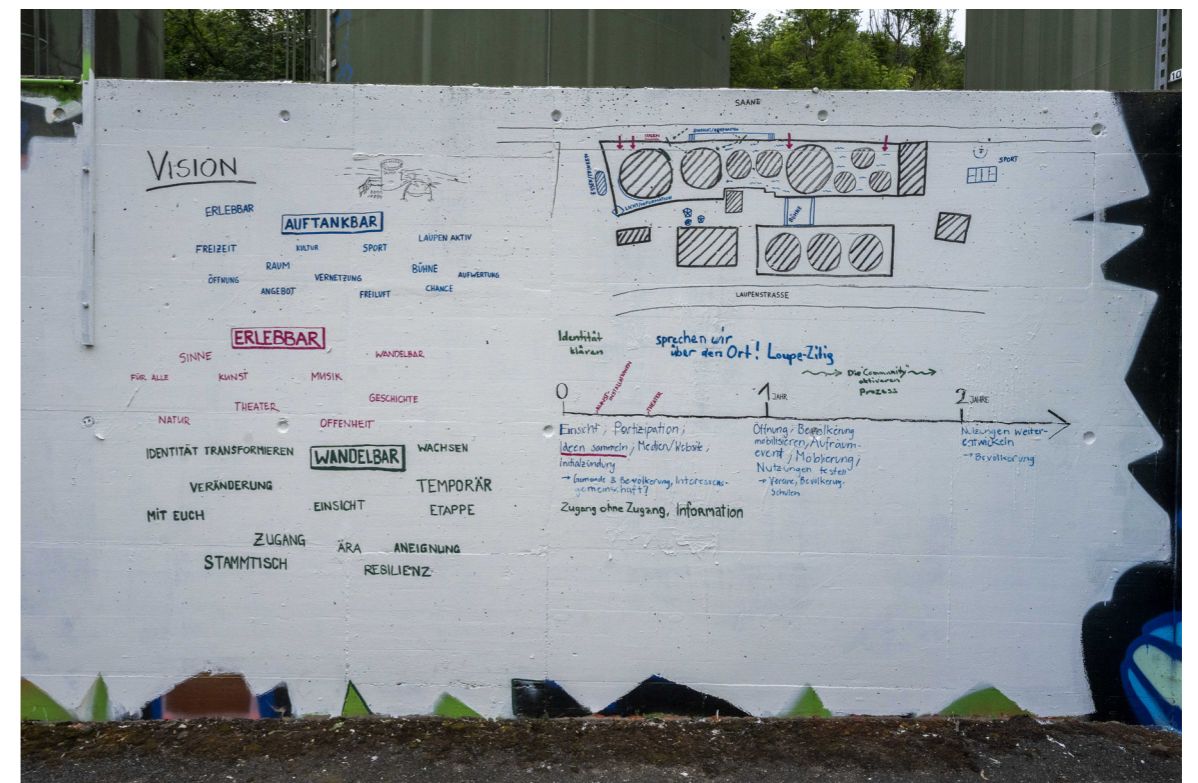 VISION
ERLEBBAR
AUFTANKBAR
LAUPEN AKTIV
FREIZEIT KULTUR SPORT
RAUM BÜHNE
ÖFFNUNG VERNETZUNG AUFWERTUNG
ANGEBOT FREILUFT CHANCE
ERLEBBAR
SINNE WANDELBAR
FÜR ALLE KUNST MUSIK
THEATER GESCHICHTE
NATUR OFFENHEIT
IDENTITÄT TRANSFORMIEREN WANDELBAR WACHSEN
VERÄNDERUNG TEMPORÄR
MIT EUCH EINSICHT ETAPPE
ZUGANG ÄRA ANEIGNUNG
STAMMTISCH RESILIENZ
SAANE
SPORT
LICHT/INFORMATION
BÜHNE
LAUPENSTRASSE
Identität
klären
sprechen wir
über den Ort! Loupe-Zilig
Die "Community"
aktivieren
Prozess
THEATER
0 1 JAHR 2 JAHRE
Einsicht, Partizipation,
Ideen sammeln, Medien/Website,
Initialzündung
→ Gemeinde & Bevölkerung, Interessens-
gemeinschaft?
Zugang ohne Zugang, Information
Öffnung, Bevölkerung
mobilisieren, Aufräum-
event, Möblierung,
Nutzungen testen
→ Vereine, Bevölkerung,
Schulen
Nutzungen weiter-
entwickeln
→ Bevölkerung